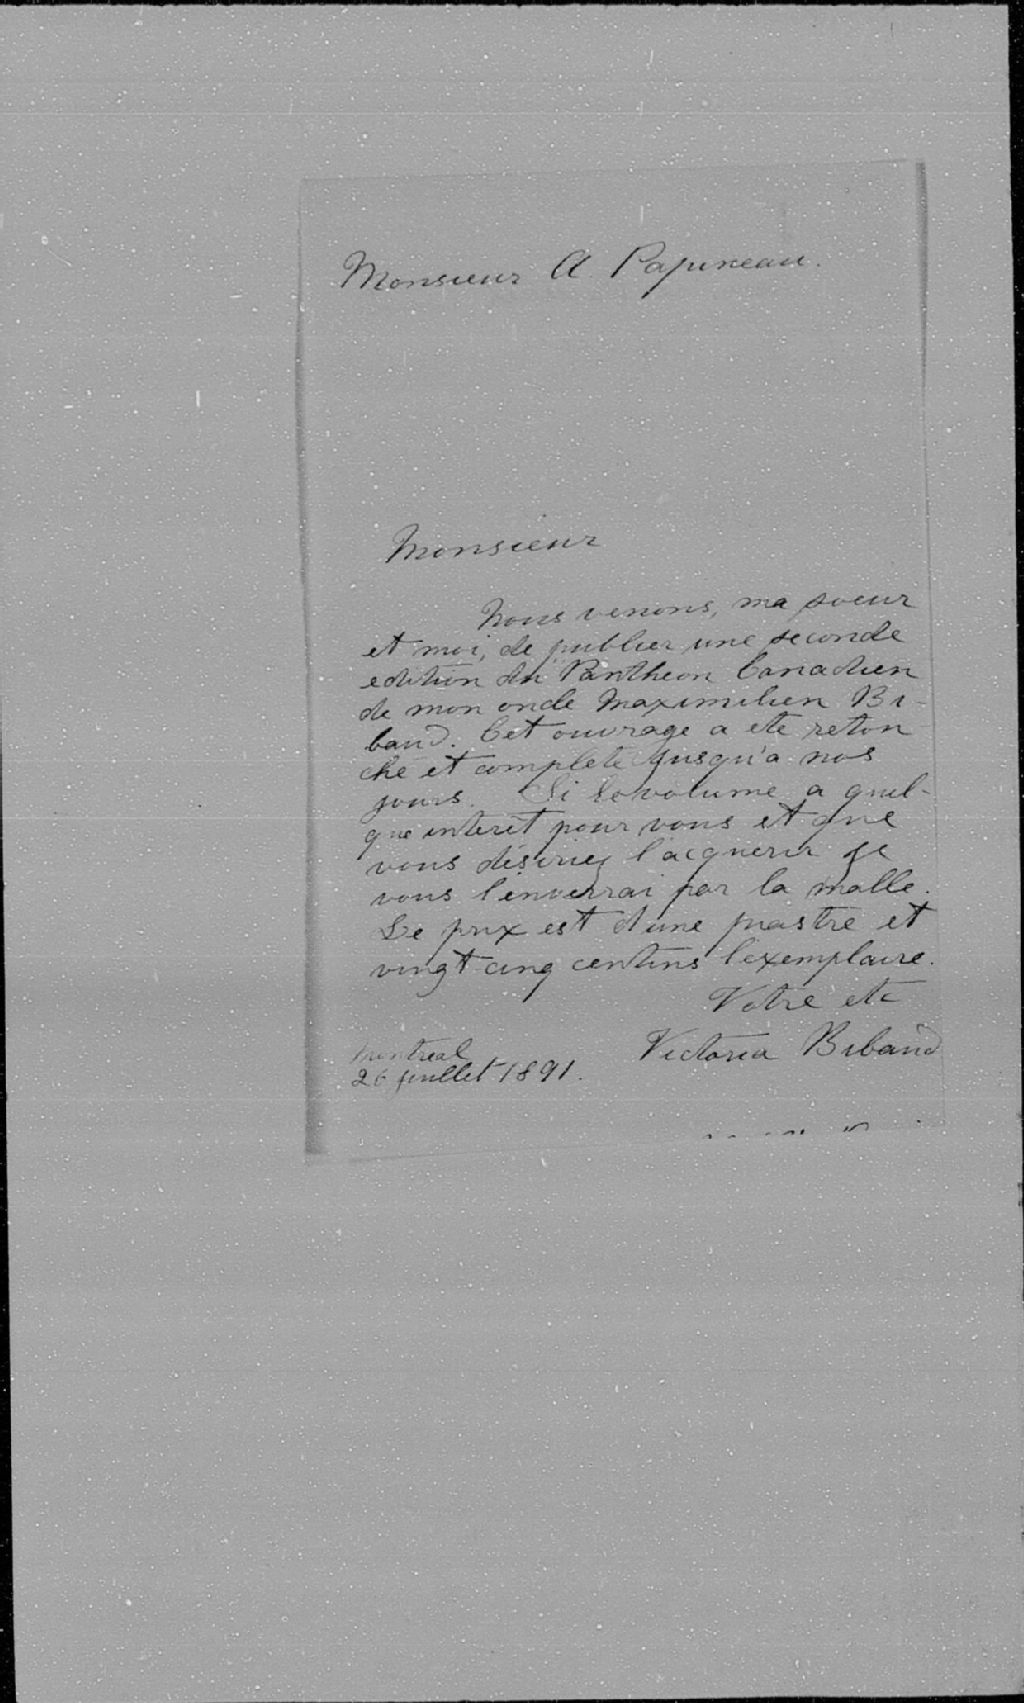 Monsieur A. Papineau.
Monsieur
Nous venons, ma soeur
et moi, de publier une seconde
edition du Pantheon Canadien
de mon oncle Maximilien Bi-
baud. Cet ouvrage a ete retou
ché et complete jusqu'a nos
jours. Si le volume a quel-
que interêt pour vous et que
vous désiriez l'acquerir je
vous l'enverrai par la malle.
Le prix est d'une piastre et
vingt cinq centins l'exemplaire.
Votre etc
Victoria Bibaud
Montreal
26 juillet 1891.